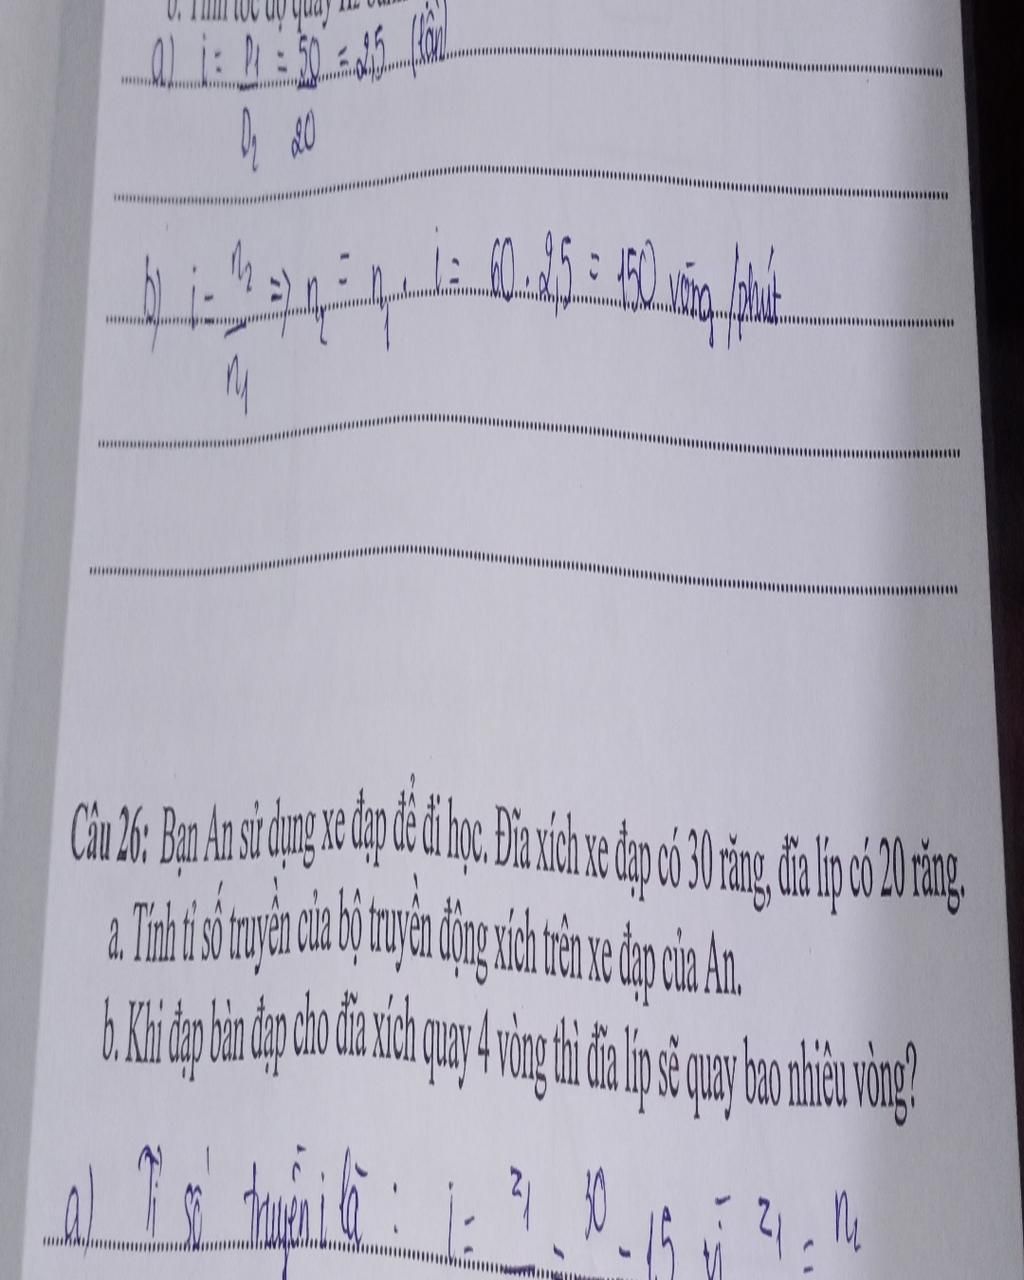 b. Tính tốc độ quay n2
a) i = D1 = 50 = 2,5 (lần)
D2 20
b) i = n2 => n2 = n1 . i = 60 . 2,5 = 150 vòng /phút
n1
Câu 26: Bạn An sử dụng xe đạp để đi học. Đĩa xích xe đạp có 30 răng, đĩa líp có 20 răng.
a. Tính tỉ số truyền của bộ truyền động xích trên xe đạp của An.
b. Khi đạp bàn đạp cho đĩa xích quay 4 vòng thì đĩa líp sẽ quay bao nhiêu vòng?
a) Tỉ số truyền i là : i = z1 = 30 = 1,5 vì z1 =